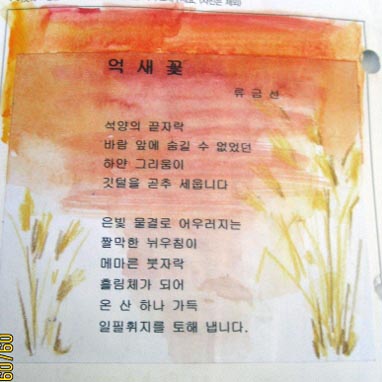 억새꽃
류금선
석양의 끝자락
바람 앞에 숨길 수 없었던
하얀 그리움이
깃털을 곧추 세웁니다
은빛 물결로 어우러지는
짤막한 뉘우침이
메마른 붓자락
흘림체가 되어
온 산 하나 가득
일필휘지를 토해 냅니다.